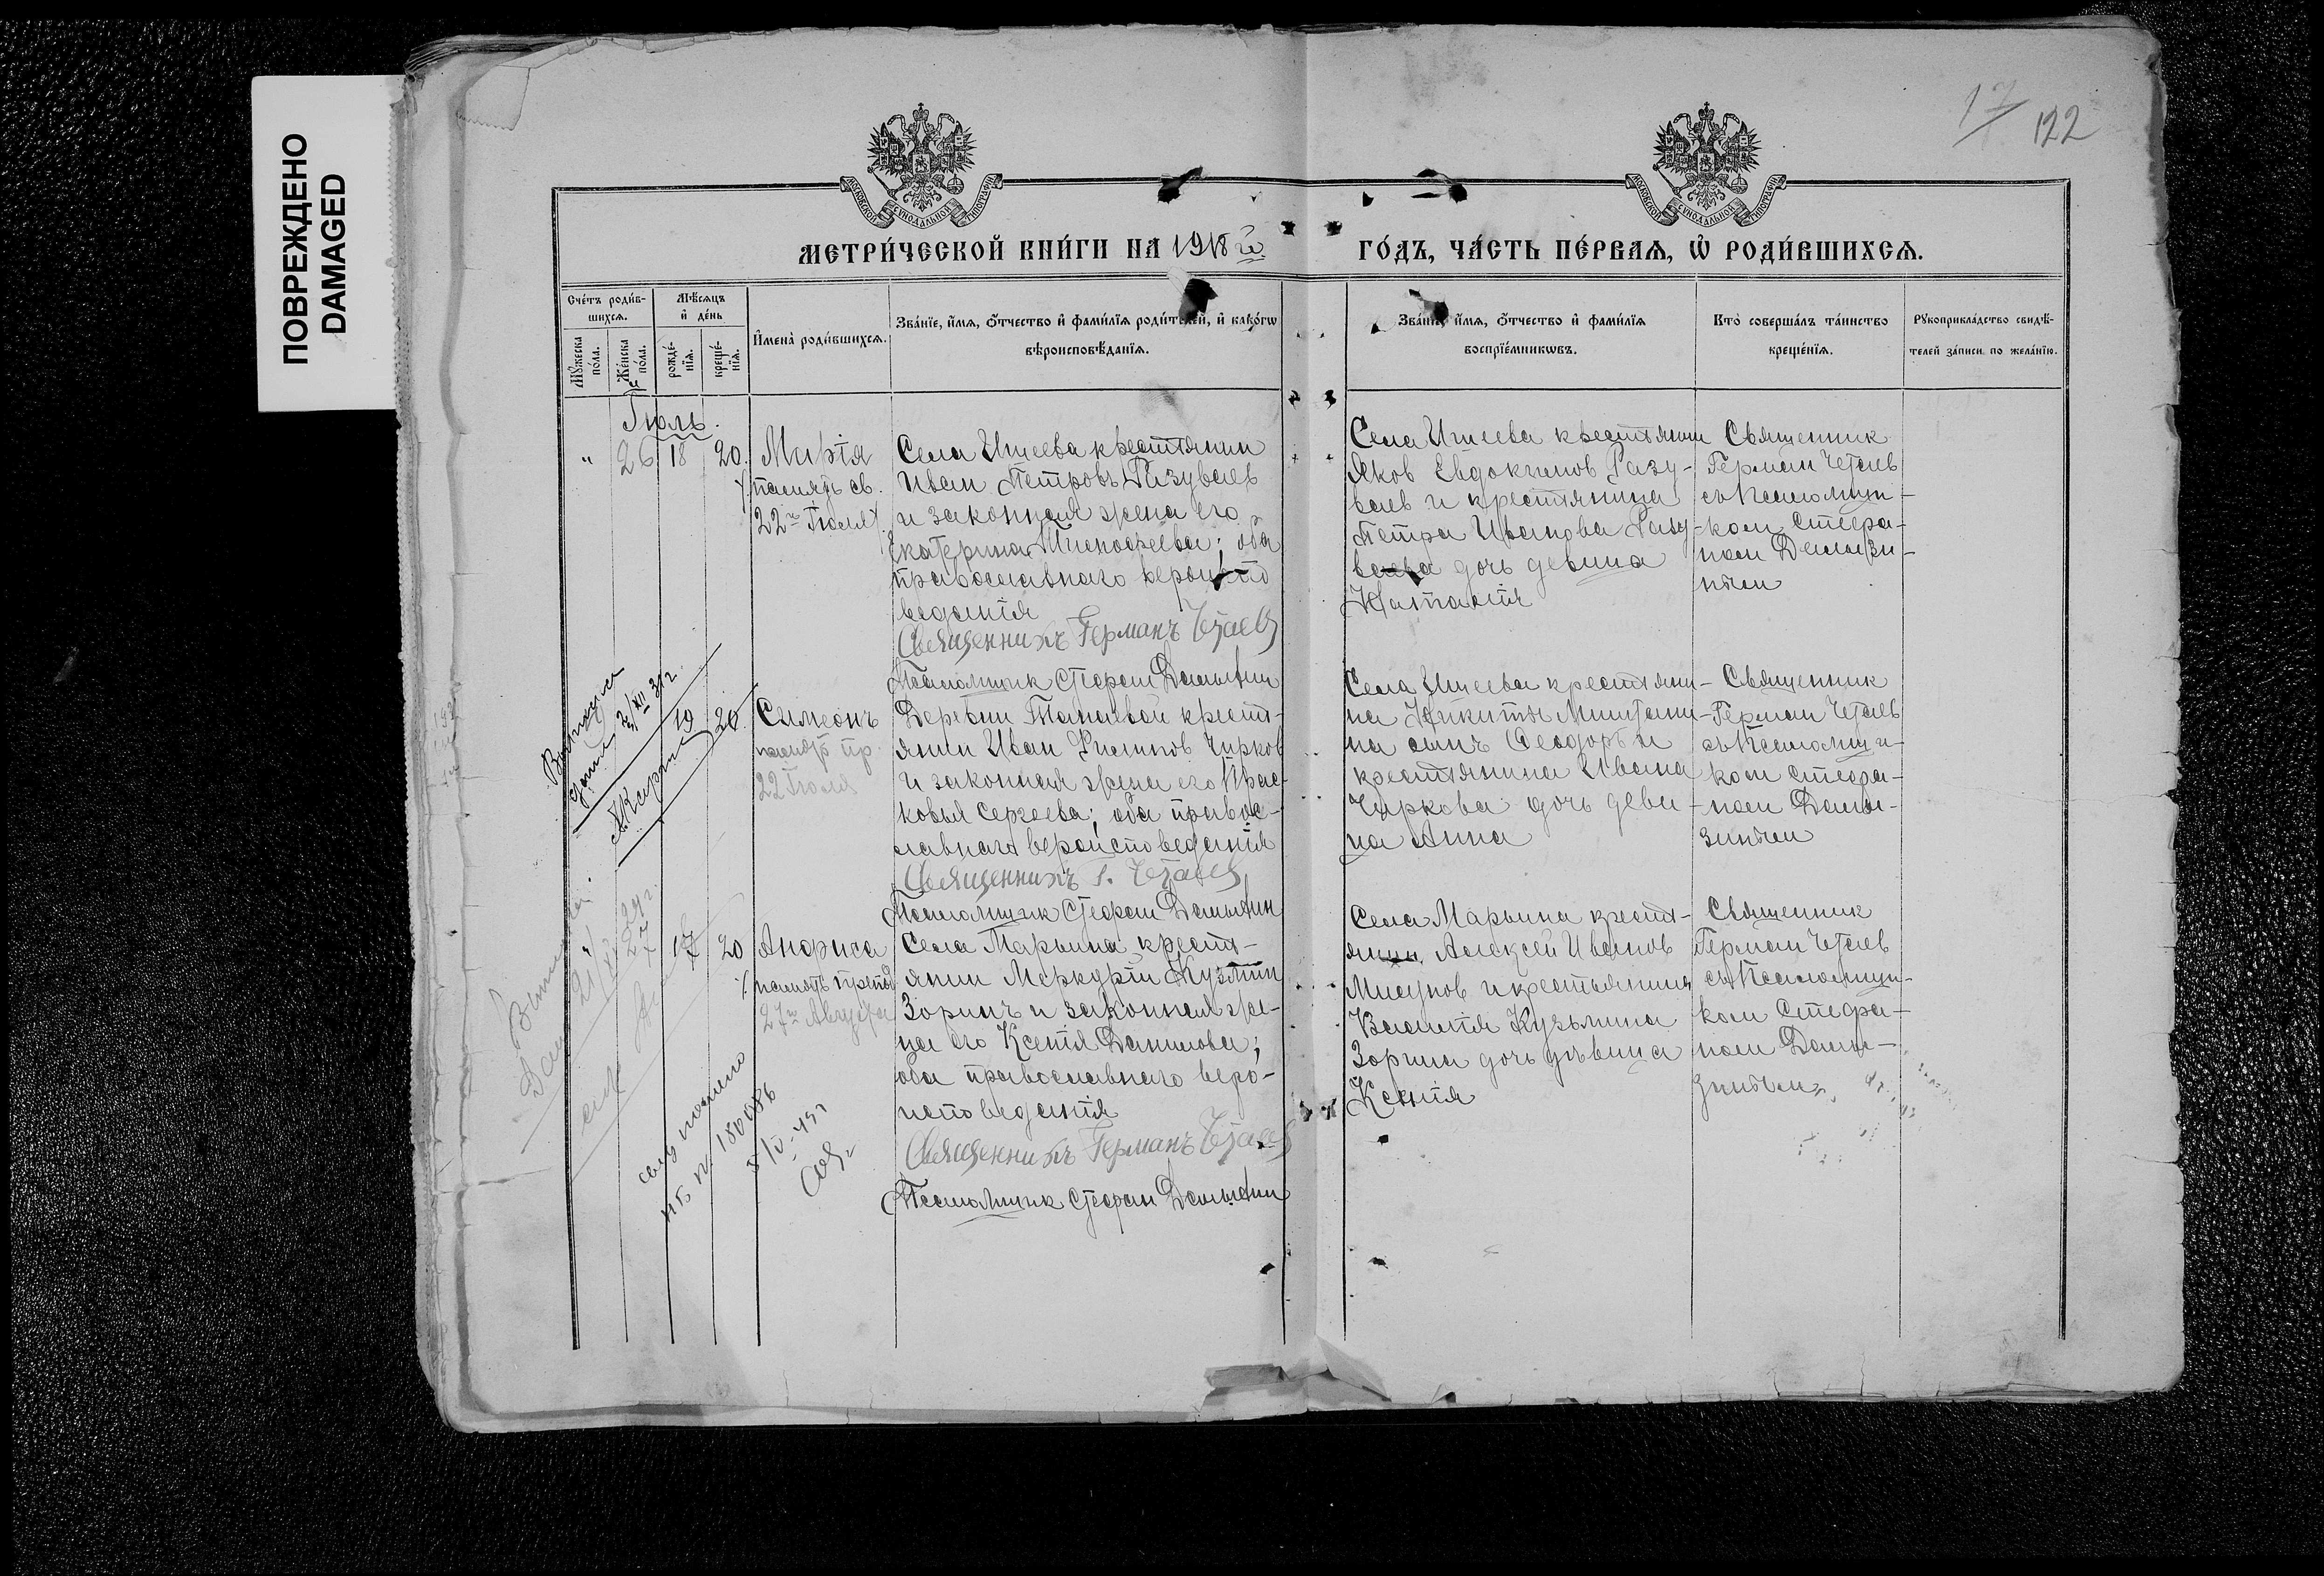 ПОВРЕЖДЕНО
DAMAGED
17
122
МОСКОВСКОЙ СѴНОДАЛЬНОЙ ТИПОГРАФІИ
МОСКОВСКОЙ СѴНОДАЛЬНОЙ ТИПОГРАФІИ
МЕТРИ́ЧЕСКОЙ КНИ́ГИ НА 1918 й ГО́ДЪ, ЧА́СТЬ ПЕ́РВАѦ, Ѡ҆ РОДИ́ВШИХСѦ.
Сче́тъ роди́в-
шихсѧ.
Мꙋ́жеска
по́ла.
Же́нска
по́ла.
Мѣ́сѧцъ
и҆ де́нь
рожде́-
нїѧ.
креще́-
нїѧ.
И҆мена̀ роди́вшихсѧ.
Зва́нїе, и҆́мѧ, ѻ҆́тчество и҆ фами́лїѧ роди́телей, и҆ како́гѡ
вѣроисповѣ́данїѧ.
Зва́нїе, и҆́мѧ, ѻ҆́тчество и҆ фами́лїѧ
воспрїе́мникѡвъ.
Кто̀ соверша́лъ та́инство
креще́нїѧ.
Рꙋкоприкла́дство свидѣ́-
телей за́писи по жела́нїю.
Іюль.
" 26 18 20.
Марія
память св.
22го Іюля
Села Ишеева крестьянин
Иван Петровъ Разуваев
и законная жена его
Екатерина Тимофеева; оба
православнаго вероиспо
ведания
Священникъ Германъ Четаев
Псаломщик Стефан Дамызин
Села Ишеева крестьянин
Яков Евдокимов Разу-
ваев и крестьянина
Петра Иванова Разу-
ваева дочь девица
Наталия
Священник
Герман Четаев
съ Псаломщи-
ком Стефа-
ном Дамызи-
ным
19 20
Симеонъ
память пр.
22 Іюля
Деревни Танаевой кресть-
янин Иван Филипов Чирков
и законная жена его Прас-
ковья Сергеева; оба правос-
лавнаго вероисповедания
Священникъ Г. Четаев
Псаломщик Стефан Дамызин
Села Ишеева крестьяни-
на Никиты Мишанина
сынъ Феодоръ и
крестьянина Ивана
Чиркова дочь деви-
ца Анна
Священник
Герман Четаев
съ Псаломщи-
ком Стефа-
ном Дамы-
зиным
27 17 20
Анфиса
память препод
27го Августа
Села Марьина кресть-
янин Меркурий Кузмин
Зоринъ и законная же-
на его Ксения Данилова;
оба православнаго веро-
исповедания
Священникъ Германъ Четаев
Псаломщик Стефан Дамызин
Села Марьина кресть-
янин Алексей Иванов
и крестьянина
Василия Кузьмина
Зорина дочь девица
Ксения
Священник
Герман Четаев
съ Псаломщи-
ком Стефа-
ном Дамы-
зиным